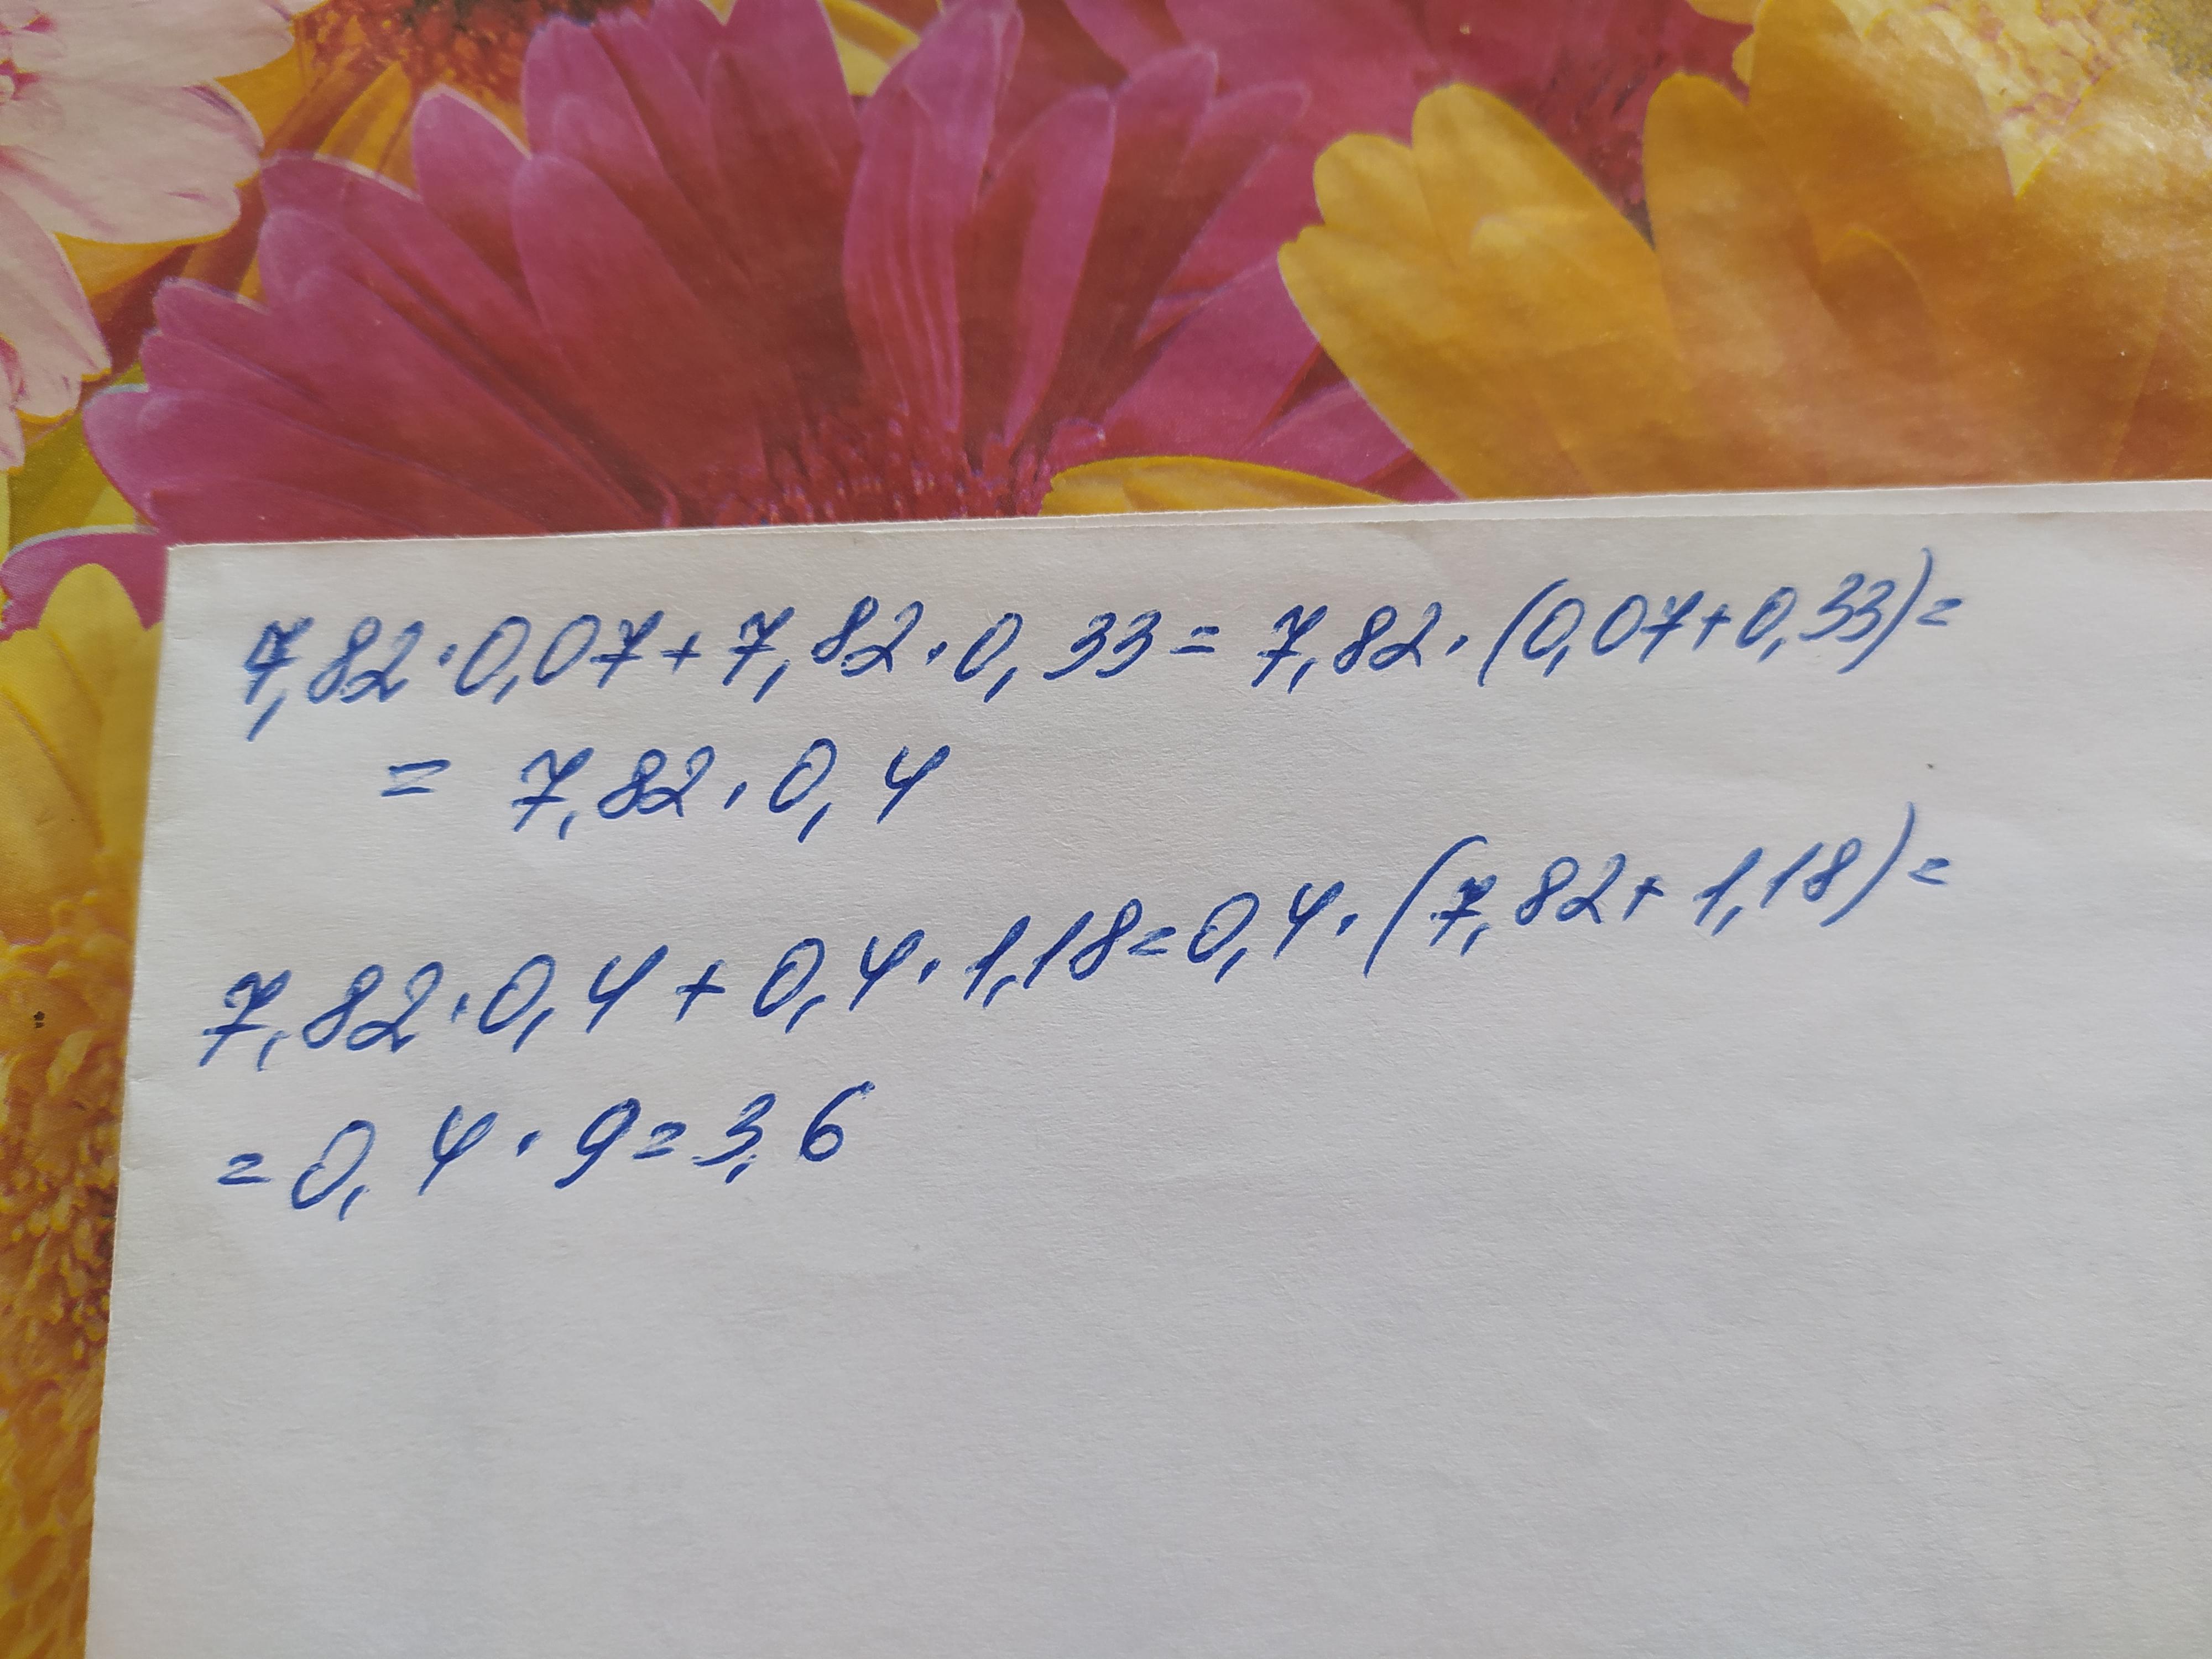 7,82·0,07+7,82·0,33=7,82·(0,07+0,33)=
= 7,82·0,4
7,82·0,4+0,4·1,18=0,4·(7,82+1,18)=
=0,4·9=3,6